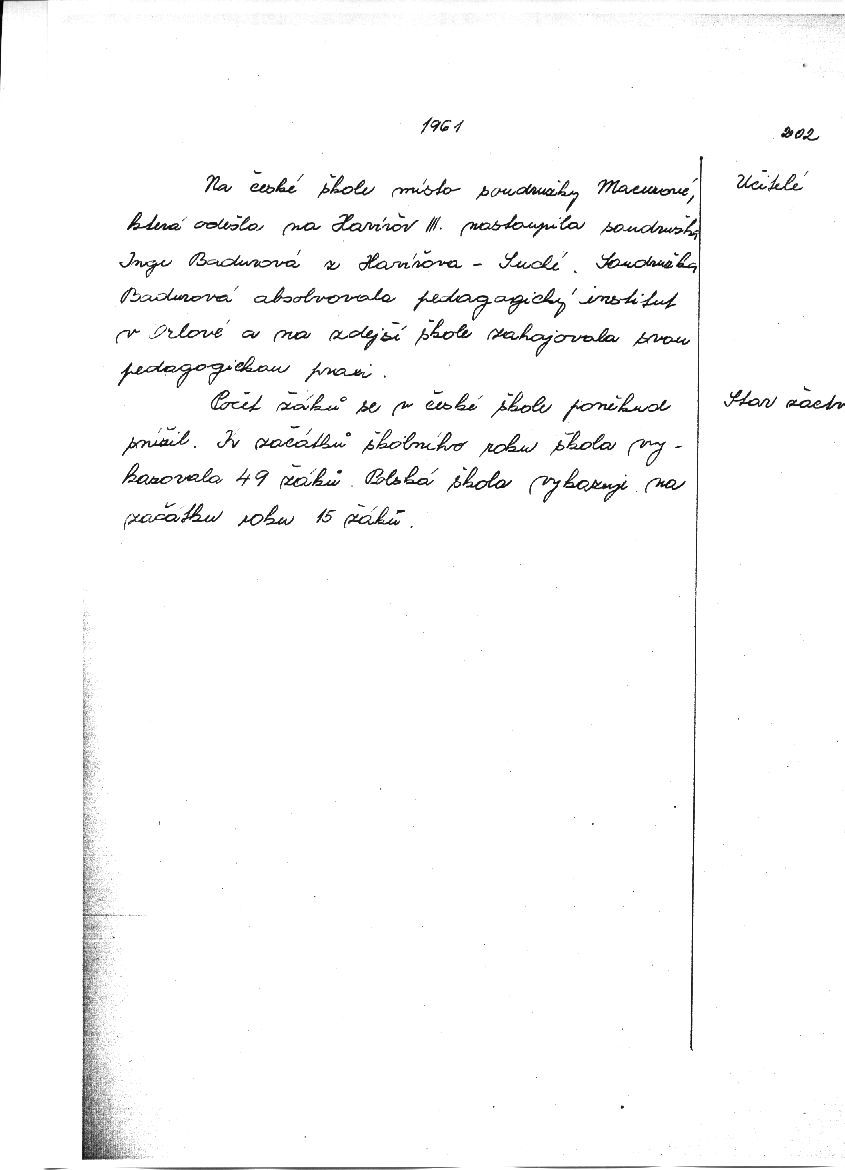 1961
202
Na české škole místo soudružky Macurové,
Učitelé
která odešla na Havířov III. nastoupila soudružka
Inge Badurová z Havířova - Suché. Soudružka
Badurová absolvovala pedagagický institut
v Orlové a na zdejší škole zahajovala svou
pedagogickou praxi.
Počet žáků se v české škole poněkud
Stav žactv
snížil. K začátků školního roku škola vy-
kazovala 49 žáků. Polská škola vykazuje na
začátku roku 15 žáků.